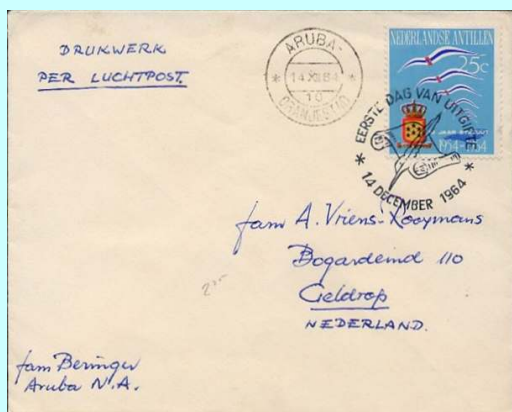 DRUKWERK
PER LUCHTPOST.
ARUBA
14 XII 64
10
ORANJESTAD
NEDERLANDSE ANTILLEN
25c
JAAR STATUUT
1954-1964
EERSTE DAG VAN UITGIFTE
14 DECEMBER 1964
fam A. Vriens-Kooymans
Bogardeind 110
Geldrop
NEDERLAND.
fam Beringer
Aruba N.A.